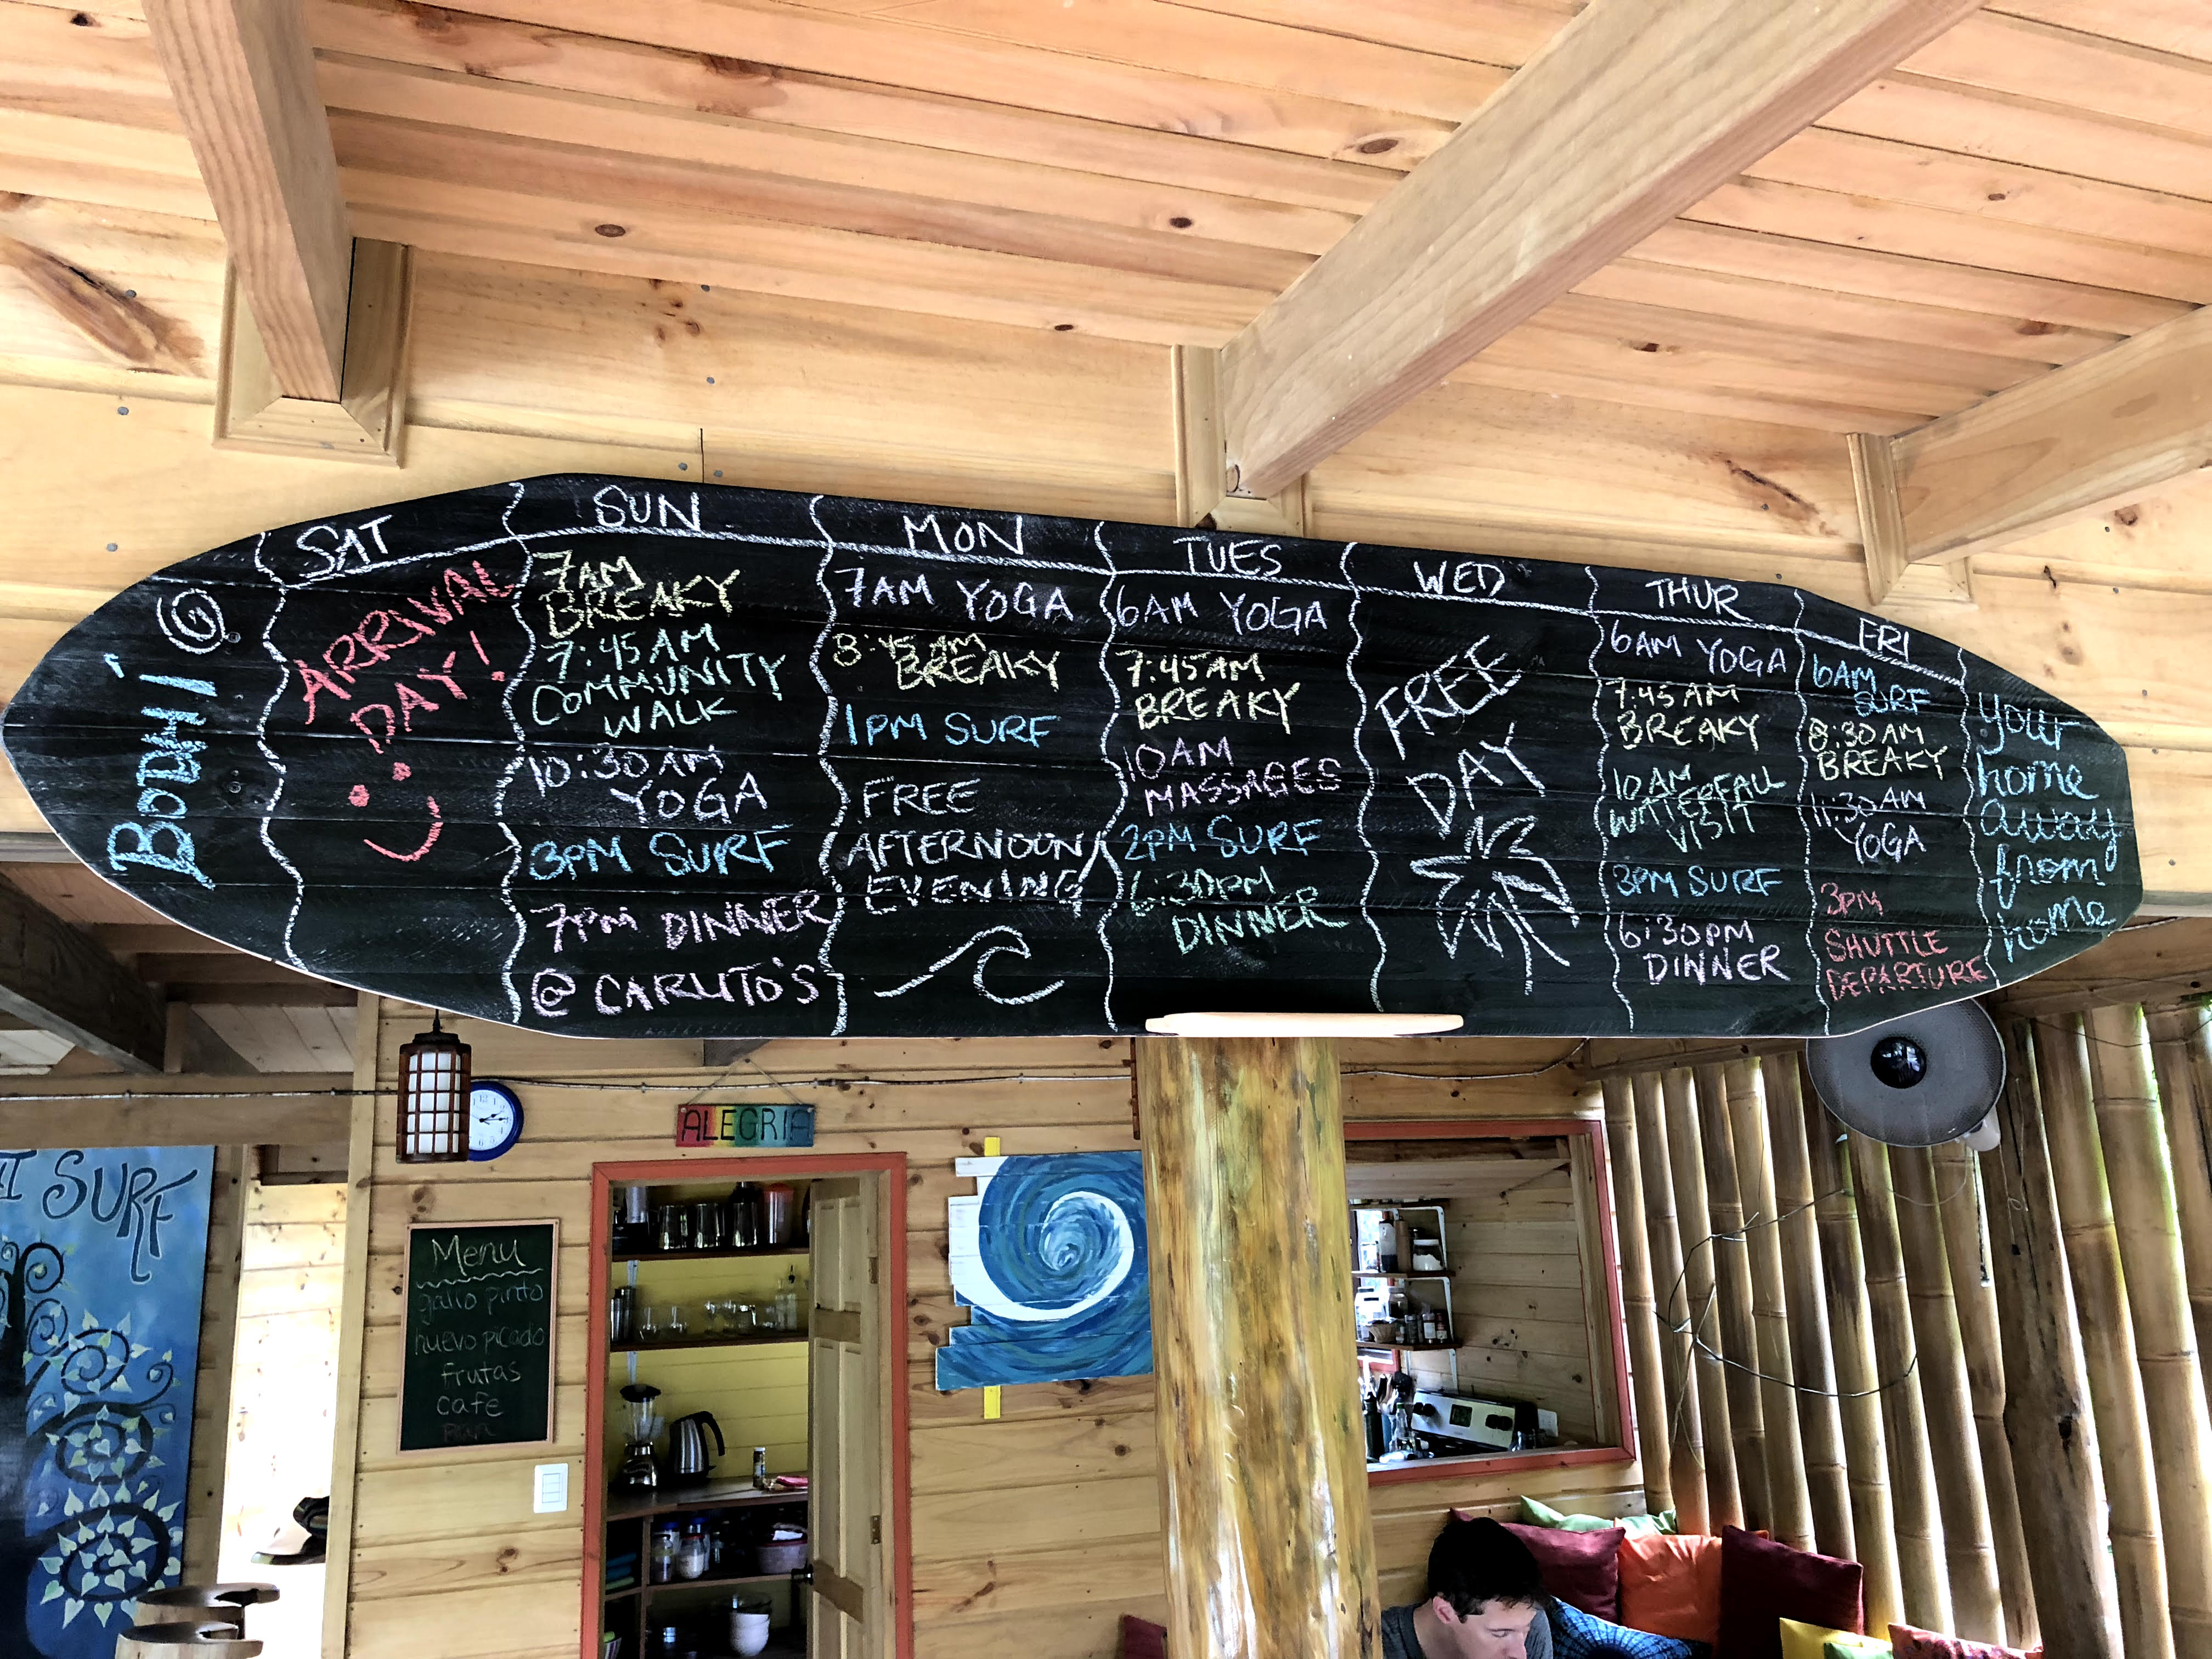 BODHI
SAT
ARRIVAL
DAY!
SUN
7AM
BREAKY
7:45AM
COMMUNITY
WALK
10:30AM
YOGA
3PM SURF
7PM DINNER
@ CARUTO'S
MON
7AM YOGA
8:45AM
BREAKY
1PM SURF
FREE
AFTERNOON/
EVENING
TUES
6AM YOGA
7:45AM
BREAKY
10AM
MASSAGES
2PM SURF
6:30PM
DINNER
WED
FREE
DAY
THUR
6AM YOGA
7:45AM
BREAKY
10AM
WATERFALL
VISIT
3PM SURF
6:30PM
DINNER
FRI
6AM
SURF
8:30AM
BREAKY
11:30AM
YOGA
3PM
SHUTTLE
DEPARTURE
your
home
away
from
home
ALEGRIA
I SURF
Menu
gallo pinto
huevo picado
frutas
cafe
Pan